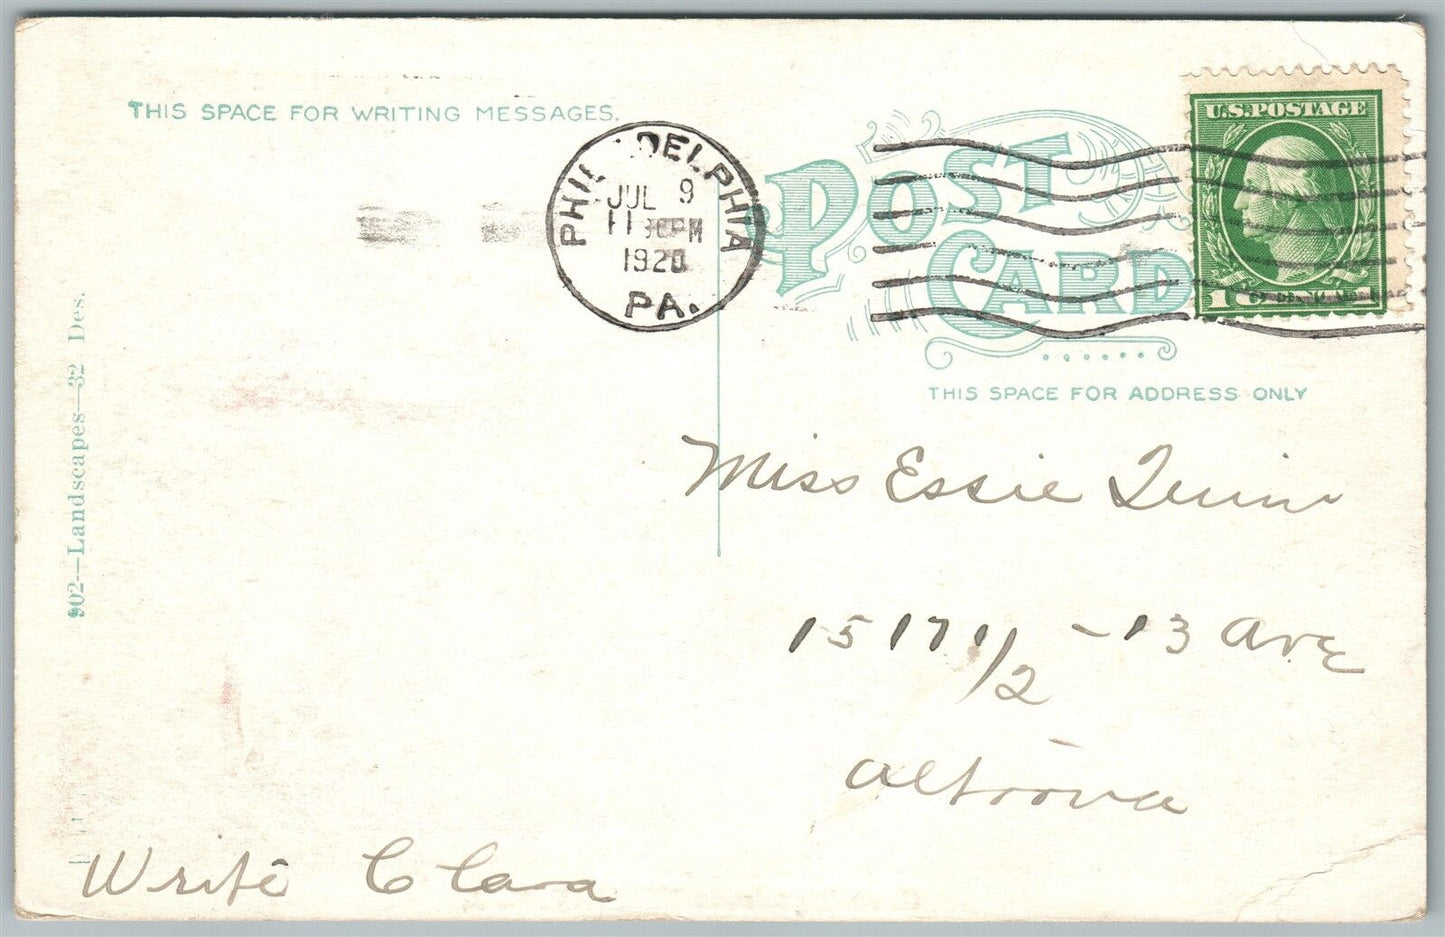 THIS SPACE FOR WRITING MESSAGES.
PHILADELPHIA
JUL 9
11 30 PM
1920
PA.
POST
CARD
U.S. POSTAGE
1
THIS SPACE FOR ADDRESS ONLY
902—Landscapes—32 Des.
Miss Essie Quinn
1517 1/2 - 13 Ave
Altoona
Write Clara